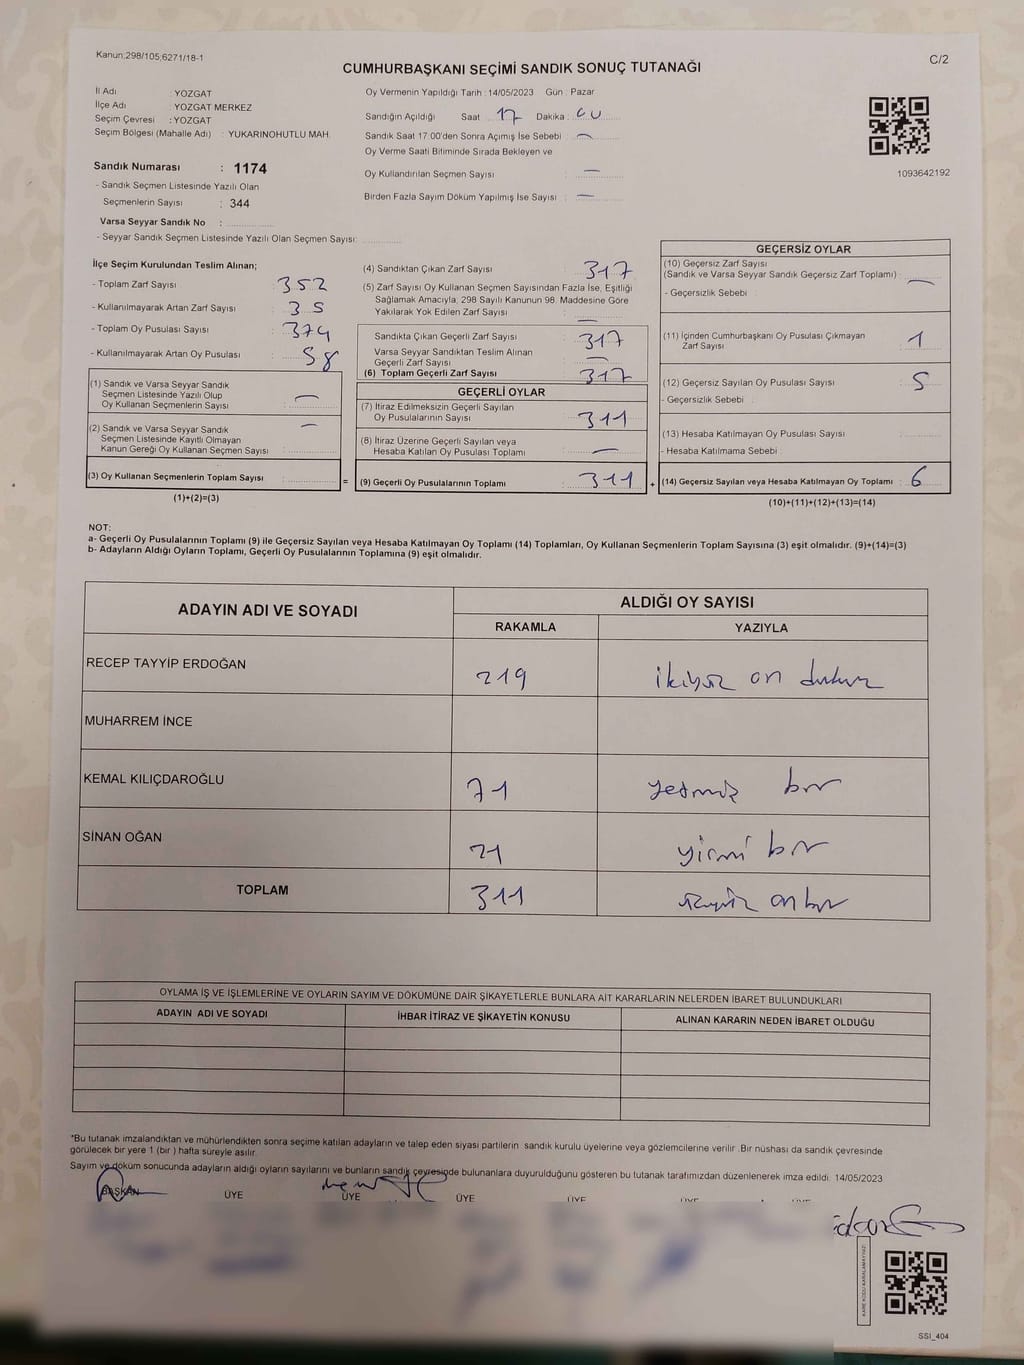 Kanun:298/105;6271/18-1
C/2
CUMHURBAŞKANI SEÇİMİ SANDIK SONUÇ TUTANAĞI
İl Adı : YOZGAT
İlçe Adı : YOZGAT MERKEZ
Seçim Çevresi : YOZGAT
Seçim Bölgesi (Mahalle Adı) : YUKARINOHUTLU MAH.
Sandık Numarası : 1174
- Sandık Seçmen Listesinde Yazılı Olan
Seçmenlerin Sayısı : 344
Varsa Seyyar Sandık No :
- Seyyar Sandık Seçmen Listesinde Yazılı Olan Seçmen Sayısı:
Oy Vermenin Yapıldığı Tarih : 14/05/2023 Gün : Pazar
Sandığın Açıldığı Saat 17 Dakika :
Sandık Saat 17:00'den Sonra Açımış İse Sebebi : —
Oy Verme Saati Bitiminde Sırada Bekleyen ve
Oy Kullandırılan Seçmen Sayısı : —
Birden Fazla Sayım Döküm Yapılmış İse Sayısı : —
1093642192
İlçe Seçim Kurulundan Teslim Alınan;
- Toplam Zarf Sayısı : 352
- Kullanılmayarak Artan Zarf Sayısı : 35
- Toplam Oy Pusulası Sayısı : 374
- Kullanılmayarak Artan Oy Pusulası : 58
(1) Sandık ve Varsa Seyyar Sandık
Seçmen Listesinde Yazılı Olup
Oy Kullanan Seçmenlerin Sayısı : —
(2) Sandık ve Varsa Seyyar Sandık
Seçmen Listesinde Kayıtlı Olmayan
Kanun Gereği Oy Kullanan Seçmen Sayısı : —
(3) Oy Kullanan Seçmenlerin Toplam Sayısı :
(1)+(2)=(3)
(4) Sandıktan Çıkan Zarf Sayısı : 317
(5) Zarf Sayısı Oy Kullanan Seçmen Sayısından Fazla İse, Eşitliği
Sağlamak Amacıyla; 298 Sayılı Kanunun 98. Maddesine Göre
Yakılarak Yok Edilen Zarf Sayısı : —
Sandıkta Çıkan Geçerli Zarf Sayısı : 317
Varsa Seyyar Sandıktan Teslim Alınan
Geçerli Zarf Sayısı : —
(6) Toplam Geçerli Zarf Sayısı : 317
GEÇERLİ OYLAR
(7) İtiraz Edilmeksizin Geçerli Sayılan
Oy Pusulalarının Sayısı : 311
(8) İtiraz Üzerine Geçerli Sayılan veya
Hesaba Katılan Oy Pusulası Toplamı : —
= (9) Geçerli Oy Pusulalarının Toplamı : 311 +
GEÇERSİZ OYLAR
(10) Geçersiz Zarf Sayısı
(Sandık ve Varsa Seyyar Sandık Geçersiz Zarf Toplamı) : —
- Geçersizlik Sebebi :
(11) İçinden Cumhurbaşkanı Oy Pusulası Çıkmayan
Zarf Sayısı : 1
(12) Geçersiz Sayılan Oy Pusulası Sayısı : 5
- Geçersizlik Sebebi :
(13) Hesaba Katılmayan Oy Pusulası Sayısı :
- Hesaba Katılmama Sebebi :
(14) Geçersiz Sayılan veya Hesaba Katılmayan Oy Toplamı : 6
(10)+(11)+(12)+(13)=(14)
NOT:
a- Geçerli Oy Pusulalarının Toplamı (9) ile Geçersiz Sayılan veya Hesaba Katılmayan Oy Toplamı (14) Toplamları, Oy Kullanan Seçmenlerin Toplam Sayısına (3) eşit olmalıdır. (9)+(14)=(3)
b- Adayların Aldığı Oyların Toplamı, Geçerli Oy Pusulalarının Toplamına (9) eşit olmalıdır.
ADAYIN ADI VE SOYADI ALDIĞI OY SAYISI
RAKAMLA YAZIYLA
RECEP TAYYİP ERDOĞAN 219 ikiyüz on dokuz
MUHARREM İNCE
KEMAL KILIÇDAROĞLU 71 yetmiş bir
SİNAN OĞAN 21 yirmi bir
TOPLAM 311 üçyüz on bir
OYLAMA İŞ VE İŞLEMLERİNE VE OYLARIN SAYIM VE DÖKÜMÜNE DAİR ŞİKAYETLERLE BUNLARA AİT KARARLARIN NELERDEN İBARET BULUNDUKLARI
ADAYIN ADI VE SOYADI İHBAR İTİRAZ VE ŞİKAYETİN KONUSU ALINAN KARARIN NEDEN İBARET OLDUĞU
*Bu tutanak imzalandıktan ve mühürlendikten sonra seçime katılan adayların ve talep eden siyasi partilerin sandık kurulu üyelerine veya gözlemcilerine verilir. Bir nüshası da sandık çevresinde
görülecek bir yere 1 (bir ) hafta süreyle asılır.
Sayım ve döküm sonucunda adayların aldığı oyların sayılarını ve bunların sandık çevresinde bulunanlara duyurulduğunu gösteren bu tutanak tarafımızdan düzenlenerek imza edildi. 14/05/2023
BAŞKAN ÜYE ÜYE ÜYE ÜYE
SSI_404